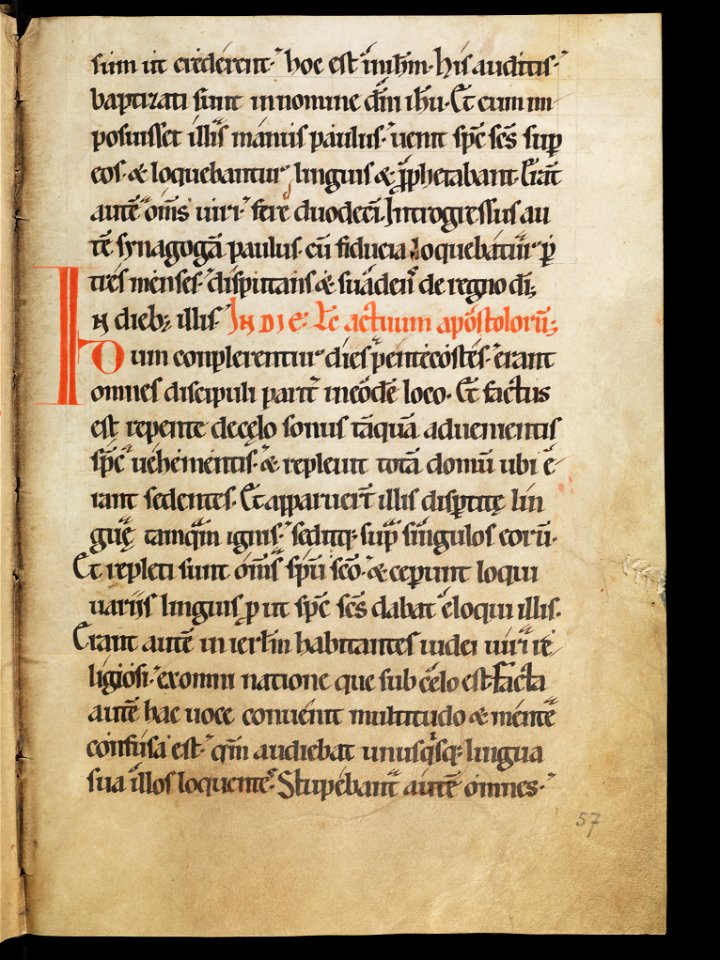 sum ut crederent. hoc est in ihm. His auditis.
baptizati sunt in nomine dni ihu. Et cum im
posuisset illis manus paulus. uenit spc scs sup
eos. & loquebantur linguis & pphetabant. Erant
aute oms uiri fere duodeci. Introgressus au
te synagoga paulus. cu fiducia loquebatur p
tres menses. disputans & suaden de regno di;
In dieb; illis. IN DIE. Lc actuum apostoloru;
Dum conplerentur dies pentecostes. erant
omnes discipuli parit in eode loco. Et factus
est repente de cęlo sonus taqua aduenientis
spc uehementis. & repleuit tota domu ubi e
rant sedentes. Et apparuert illis disptitę lin
guę tamqm ignis. seditq; sup singulos coru.
Et repleti sunt oms spu sco. & ceperunt loqui
uarijs linguis put spc scs dabat eloqui illis.
Erant aute in ierlm habitantes iudei uiri re
ligiosi. ex omni natione que sub cęlo est. Facta
aute hac uoce conuenit multitudo & mente
confusa est. qm audiebat unusqsq; lingua
sua illos loquente. Stupebant aute omnes.
57